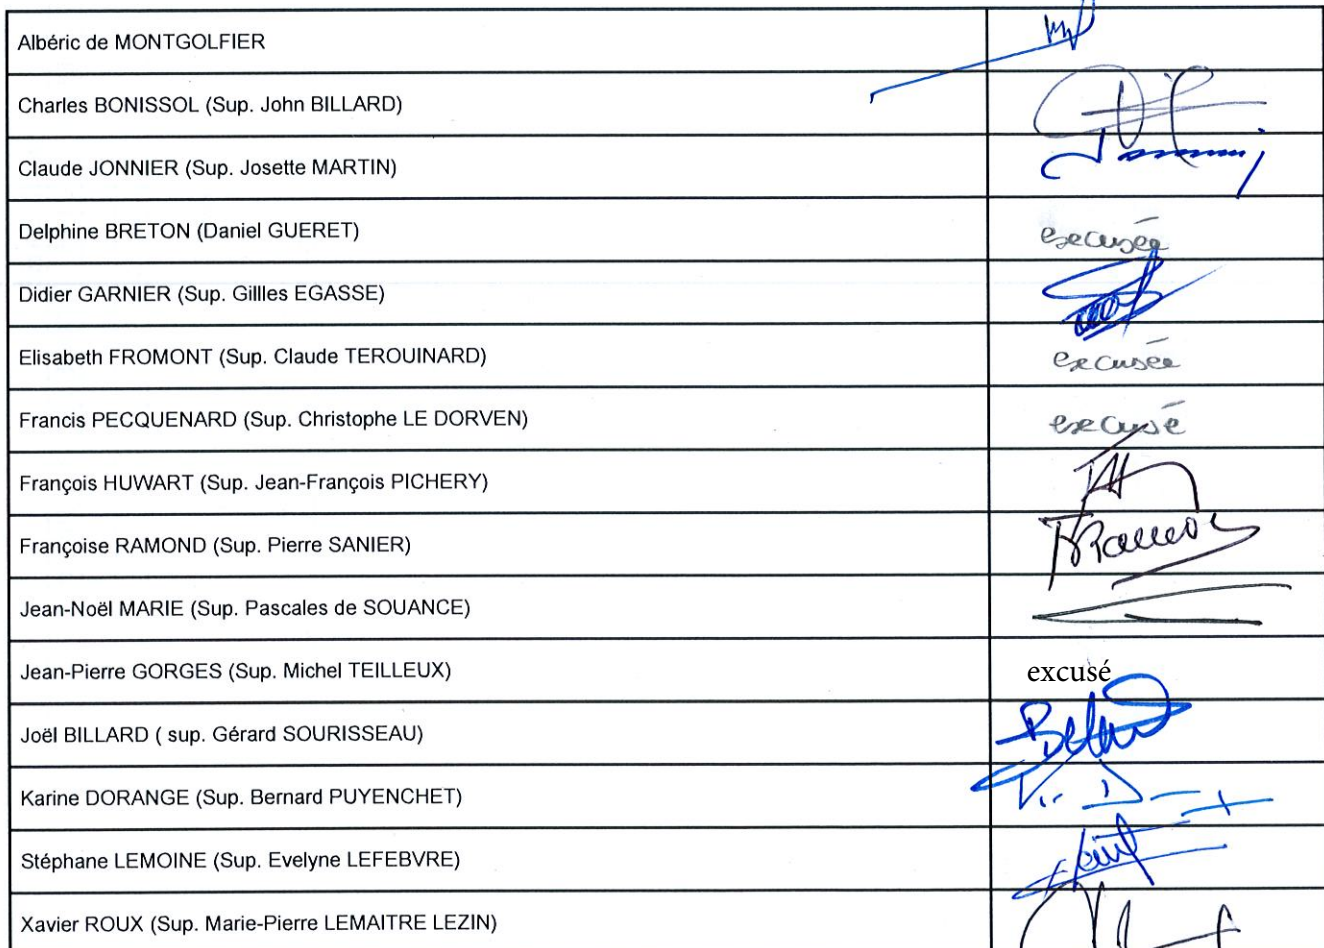 Albéric de MONTGOLFIER
Charles BONISSOL (Sup. John BILLARD)
Claude JONNIER (Sup. Josette MARTIN)
Delphine BRETON (Daniel GUERET) excusée
Didier GARNIER (Sup. Gillles EGASSE)
Elisabeth FROMONT (Sup. Claude TEROUINARD) excusée
Francis PECQUENARD (Sup. Christophe LE DORVEN) excusé
François HUWART (Sup. Jean-François PICHERY)
Françoise RAMOND (Sup. Pierre SANIER)
Jean-Noël MARIE (Sup. Pascales de SOUANCE)
Jean-Pierre GORGES (Sup. Michel TEILLEUX) excusé
Joël BILLARD ( sup. Gérard SOURISSEAU)
Karine DORANGE (Sup. Bernard PUYENCHET)
Stéphane LEMOINE (Sup. Evelyne LEFEBVRE)
Xavier ROUX (Sup. Marie-Pierre LEMAITRE LEZIN)